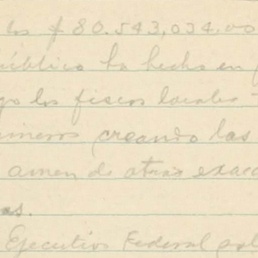 los $80.543,034.00
público ha hecho en
los fiscos locales
creando las
amen de otras exac
as.
Ejecutivo Federal